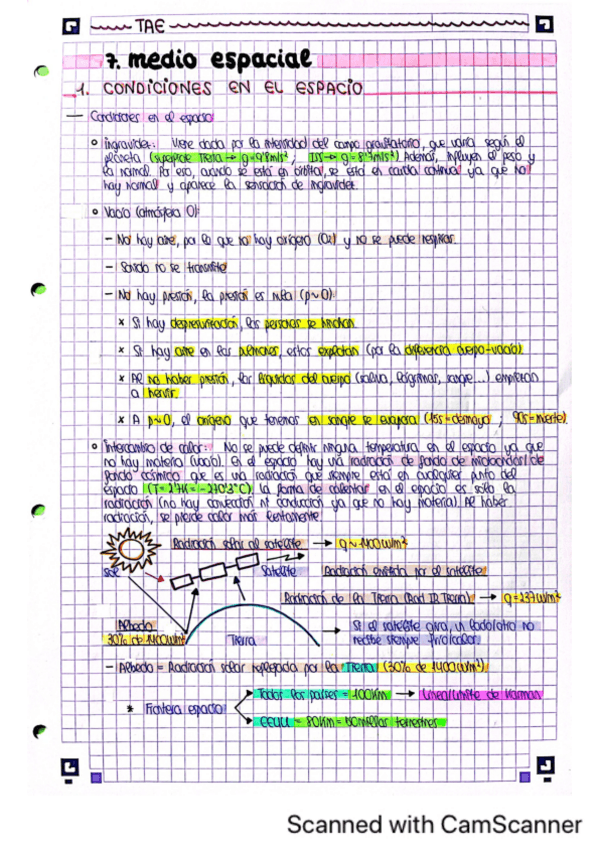 TAE
7. medio espacial
1. CONDICIONES EN EL ESPACIO
— Condiciones en el espacio
o Ingravidez: Viene dada por la intensidad del campo gravitatorio, que varía según el
planeta (superficie Tierra → g=9'8m/s²; ISS → g=8'7m/s²). Además, influyen el peso y
la normal. Por eso, cuando se está en órbita, se está en caída continua ya que no
hay normal y aparece la sensación de ingravidez.
o Vacío (atmósfera 0):
- No hay aire, por lo que no hay oxígeno (O₂) y no se puede respirar.
- Sonido no se transmite
- No hay presión, la presión es nula (p~0).
x Si hay despresurización, las personas se hinchan.
x Si hay aire en los pulmones, estos explotan (por la diferencia cuerpo-vacío).
x Al no haber presión, los líquidos del cuerpo (saliva, lágrimas, sangre...) empiezan
a hervir.
x A p~0, el oxígeno que tenemos en sangre se evapora (15s=desmayo ; 90s=muerte).
o Intercambio de calor: No se puede definir ninguna temperatura en el espacio ya que
no hay materia (vacío). En el espacio hay una radiación de fondo de microondas/de
fondo cósmico que es una radiación que siempre está en cualquier punto del
espacio (T=2'7K=-270'3°C). La forma de calentar en el espacio es sólo la
radiación (no hay convección ni conducción ya que no hay materia). Al haber
radiación, se pierde calor más lentamente.
Radiación solar al satélite → q~1400W/m²
Sol
Satélite
Radiación emitida por el satélite
Radiación de la Tierra (Rad IR Tierra) → q=237W/m²
Albedo
30% de 1400W/m²
Tierra
→ Si el satélite gira, un lado/otro no
recibe siempre frío/calor.
- Albedo = Radiación solar reflejada por la Tierra (30% de 1400W/m²)
* Frontera espacio:
Todos los países = 100km → Línea/límite de Karman
EEUU = 80km = 50millas terrestres
Scanned with CamScanner